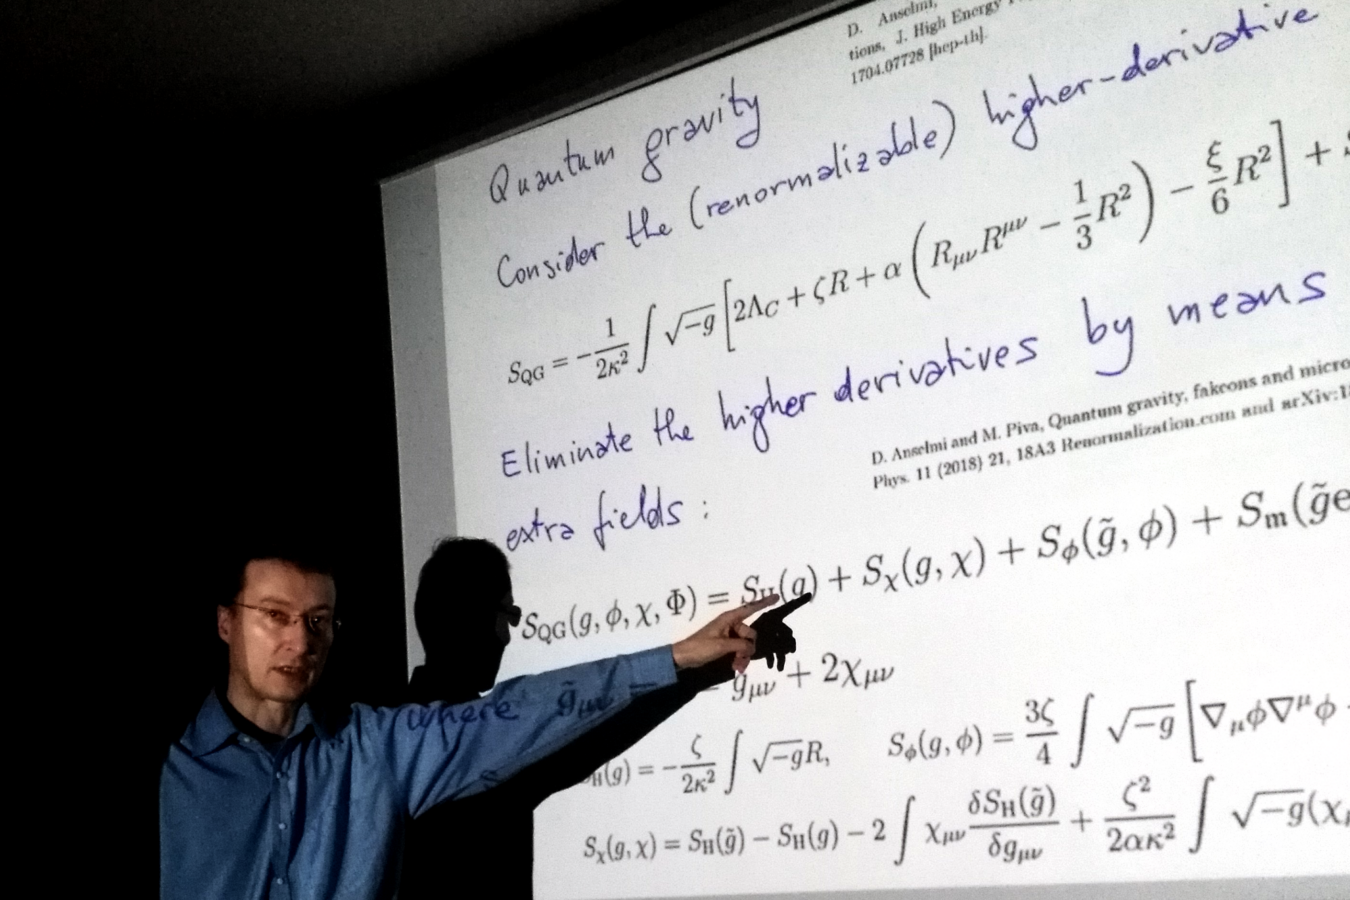 D. Anselmi,
tions, J. High Energy
1704.07728 [hep-th].
Quantum gravity
Consider the (renormalizable) higher-derivative
S_QG = -\frac{1}{2κ²} ∫ √-g [2Λ_C + ζR + α (R_μν R^μν - \frac{1}{3}R²) - \frac{ξ}{6}R²] +
Eliminate the higher derivatives by means
D. Anselmi and M. Piva, Quantum gravity, fakeons and micro
Phys. 11 (2018) 21, 18A3 Renormalization.com and arXiv:1
extra fields :
S_QG(g, ϕ, χ, Φ) = S_H(g) + S_χ(g, χ) + S_ϕ(g̃, ϕ) + S_m(g̃e
where g̃_μν = g_μν + 2χ_μν
_H(g) = -\frac{ζ}{2κ²} ∫ √-g R, S_ϕ(g, ϕ) = \frac{3ζ}{4} ∫ √-g [∇_μϕ∇^μϕ
S_χ(g, χ) = S_H(g̃) - S_H(g) - 2 ∫ χ_μν \frac{δS_H(g̃)}{δg_μν} + \frac{ζ²}{2ακ²} ∫ √-g(χ